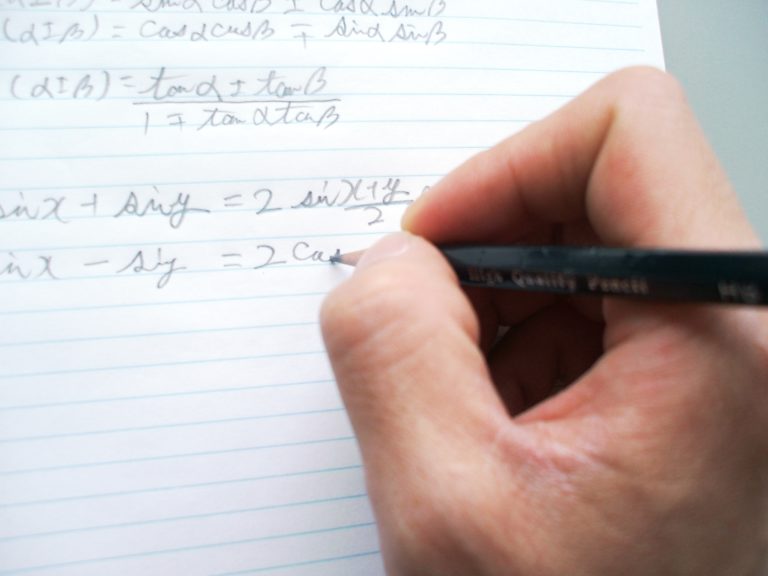 (α±β) = sinα cosβ ± cosα sinβ
(α±β) = cosα cosβ ∓ sinα sinβ
(α±β) = tanα ± tanβ
1 ∓ tanα tanβ
sinx + siny = 2 sin x+y
2
inx - siny = 2 cos
High Quality Pencil